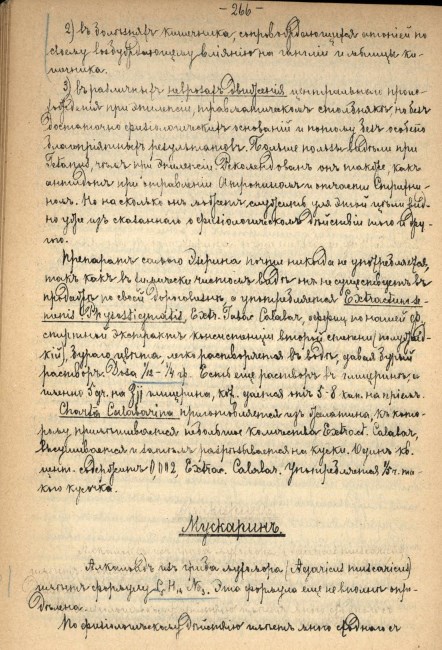 - 266 -
2) въ болѣзняхъ кишечника, сопровождающихся атоніей по
своему возбуждающему вліянію на гангліи и мышцы ки-
шечника.
3) въ различныхъ неврозахъ движенія центральнаго проис-
хожденія при эпилепсіи, травматическомъ столбнякѣ но безъ
достаточно физіологическихъ основаній и потому безъ особенно
благопріятныхъ результатовъ. Больше пользы видѣли при
Tetanus, чѣмъ при эпилепсіи. Рекомендованъ онъ также, какъ
антидотъ при отравленіи Атропиномъ и отчасти Стрихни-
номъ. Но на сколько онъ можетъ служить для этой цѣли вид-
но уже изъ сказаннаго о физіологическомъ дѣйствіи того и дру-
гого.
Препаратъ самого Эзерина почти никогда не употребляется,
такъ какъ въ химически чистомъ видѣ онъ не существуетъ въ
продажѣ по своей дороговизнѣ, а употребляется Extractum se-
minis Physostigmatis, Extr. Fabae Calabar.
спиртный экстрактъ консистенціи второй степени
бураго цвѣта легко растворяется въ водѣ, давая бурый
растворъ. Доза 1/12 - 1/4 gr. Есть еще растворъ въ глицеринѣ, а
именно 5 gr. на ʒij глицерина, кот. дается отъ 5-8 кап. на пріемъ.
Charta Calabarina приготовляется изъ желатина, къ кото-
рому примѣшивается небольшое количество Extract. Calabar.,
высушивается и затѣмъ разрѣзывается на куски. Одинъ кв.
центм. содержитъ 0,002, Extrac. Calabar. Употребляется та-
кого кусочка.
Мускаринъ.
Алкалоидъ изъ гриба мухомора (Agaricus muscaricus)
имѣетъ формулу Эта формула еще не вполнѣ опре-
дѣлена.
По физіологическому дѣйствію имѣетъ много сходнаго съ